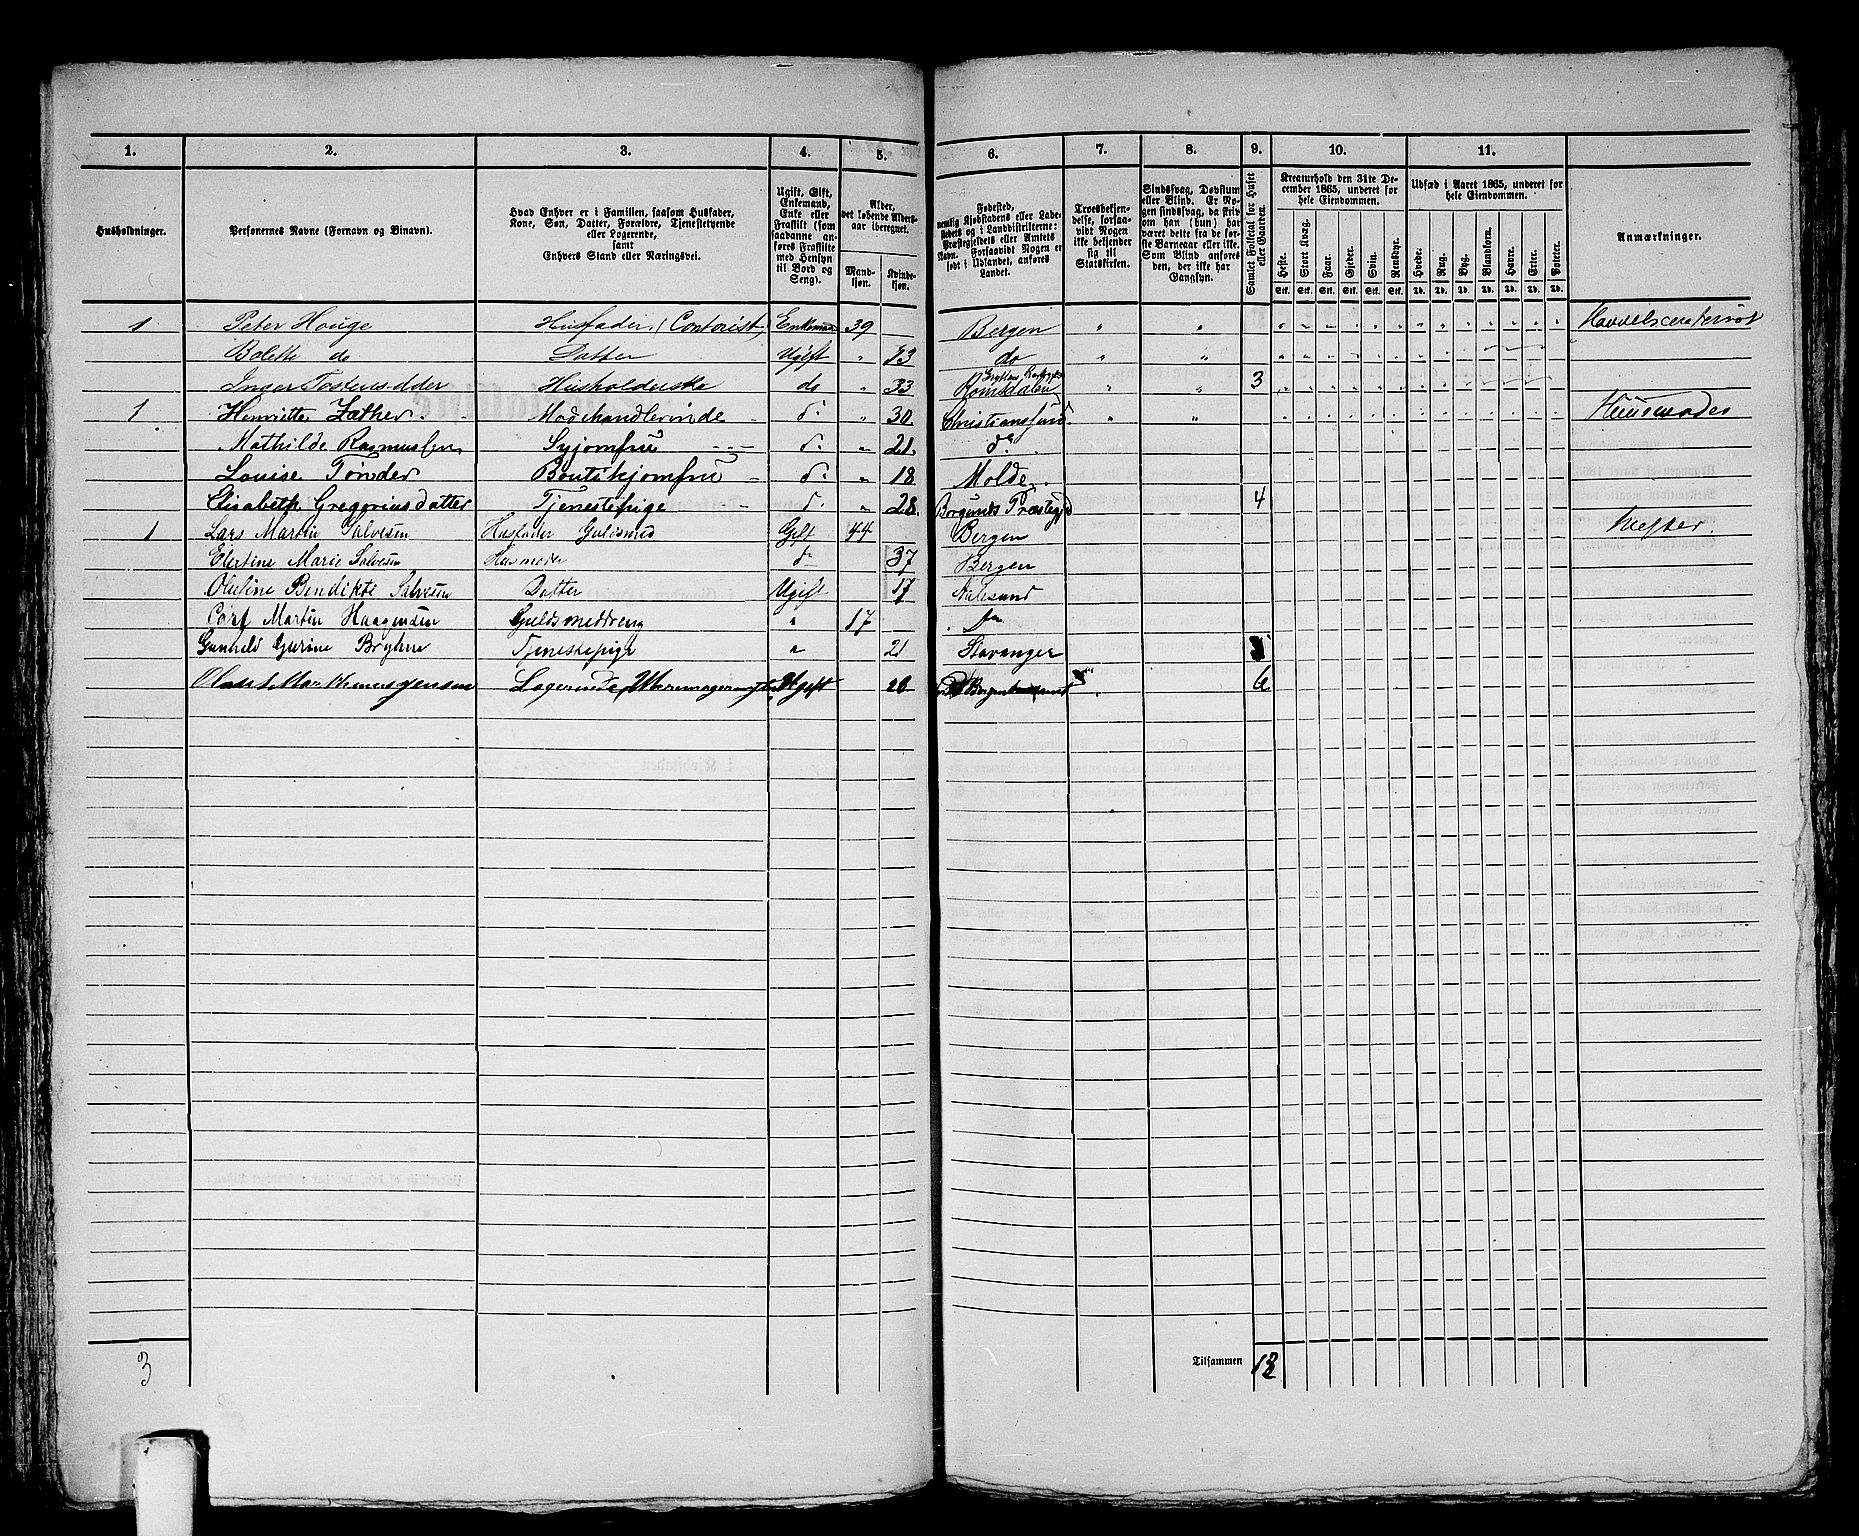 1. 2. 3. 4. 5. 6. 7. 8. 9. 10. 11.
Husholdninger.
Personernes Navne (Fornavn og Binavn).
Hvad Enhver er i Familien, saasom Husfader,
Kone, Søn, Datter, Forældre, Tjenestetyende
eller Logerende,
samt
Enhvers Stand eller Næringsvei.
Ugift, Gift,
Enkemand,
Enke eller
Fraskilt (som
saadanne an-
føres Fraskilte
med Hensyn
til Bord og
Seng).
Alder,
det løbende Alders-
aar iberegnet.
Mand-
kjøn.
Kvinde-
kjøn.
Fødested,
nemlig Kjøbstadens eller Lade-
stedets og i Landdistrikterne:
Præstegjeldets eller Amtets
Navn. Forsaavidt Nogen er
født i Udlandet, anføres
Landet.
Troesbekjen-
delse, forsaa-
vidt Nogen
ikke bekjender
sig til
Statskirken.
Sindssvag, Døvstum
eller Blind. Er No-
gen sindssvag, da skriv
om han (hun) har
været dette fra de før-
ste Barneaar eller ikke.
Som Blind anføres
den, der ikke har
Gangsyn.
Samlet Folketal for Huset
eller Gaarden.
Kreaturhold den 31te De-
cember 1865, underet for
hele Eiendommen.
Heste. Stort Kvæg. Faar. Gjeder. Svin. Rensdyr.
Stk. Stk. Stk. Stk. Stk. Stk.
Udsæd i Aaret 1865, underet for
hele Eiendommen.
Hvede. Rug. Byg. Blandkorn. Havre. Erter. Poteter.
Td. Td. Td. Td. Td. Td. Td.
Anmærkninger.
1 Peter Houge Husfader, (Contorist) Enkemand 39 Bergen " "
Bolette do Datter Ugift " 13 do " "
Inger Tostensddter Husholderske do " 33 Romsdalen " " 3
1 Henriette Father. Modehandlerinde d° " 30 Christianssund. " "
Mathilde Rasmussen Syjomfru d° " 21. d°.
Louise Tønder Boutikjomfru d° " 18 Molde.
Elisabeth Gregoriusdatter Tjenestepige d° " 28. Borgunds Præstegjd 4
1 Lars Martin Salvesen Husfader Guldsmed Gift 44 Bergen
Elertine Marie Salvesen Husmoder d° 37 Bergen
Oluline Bendikte Salvesen Datter Ugift 17 Aalesund
Martin Haagensen Guldsmeddreng " 17 Do
Gunhild Gurine Bryhne Tjenestepige " 21 Stavanger
Logerende Ugift 28 6
3
Tilsammen 13